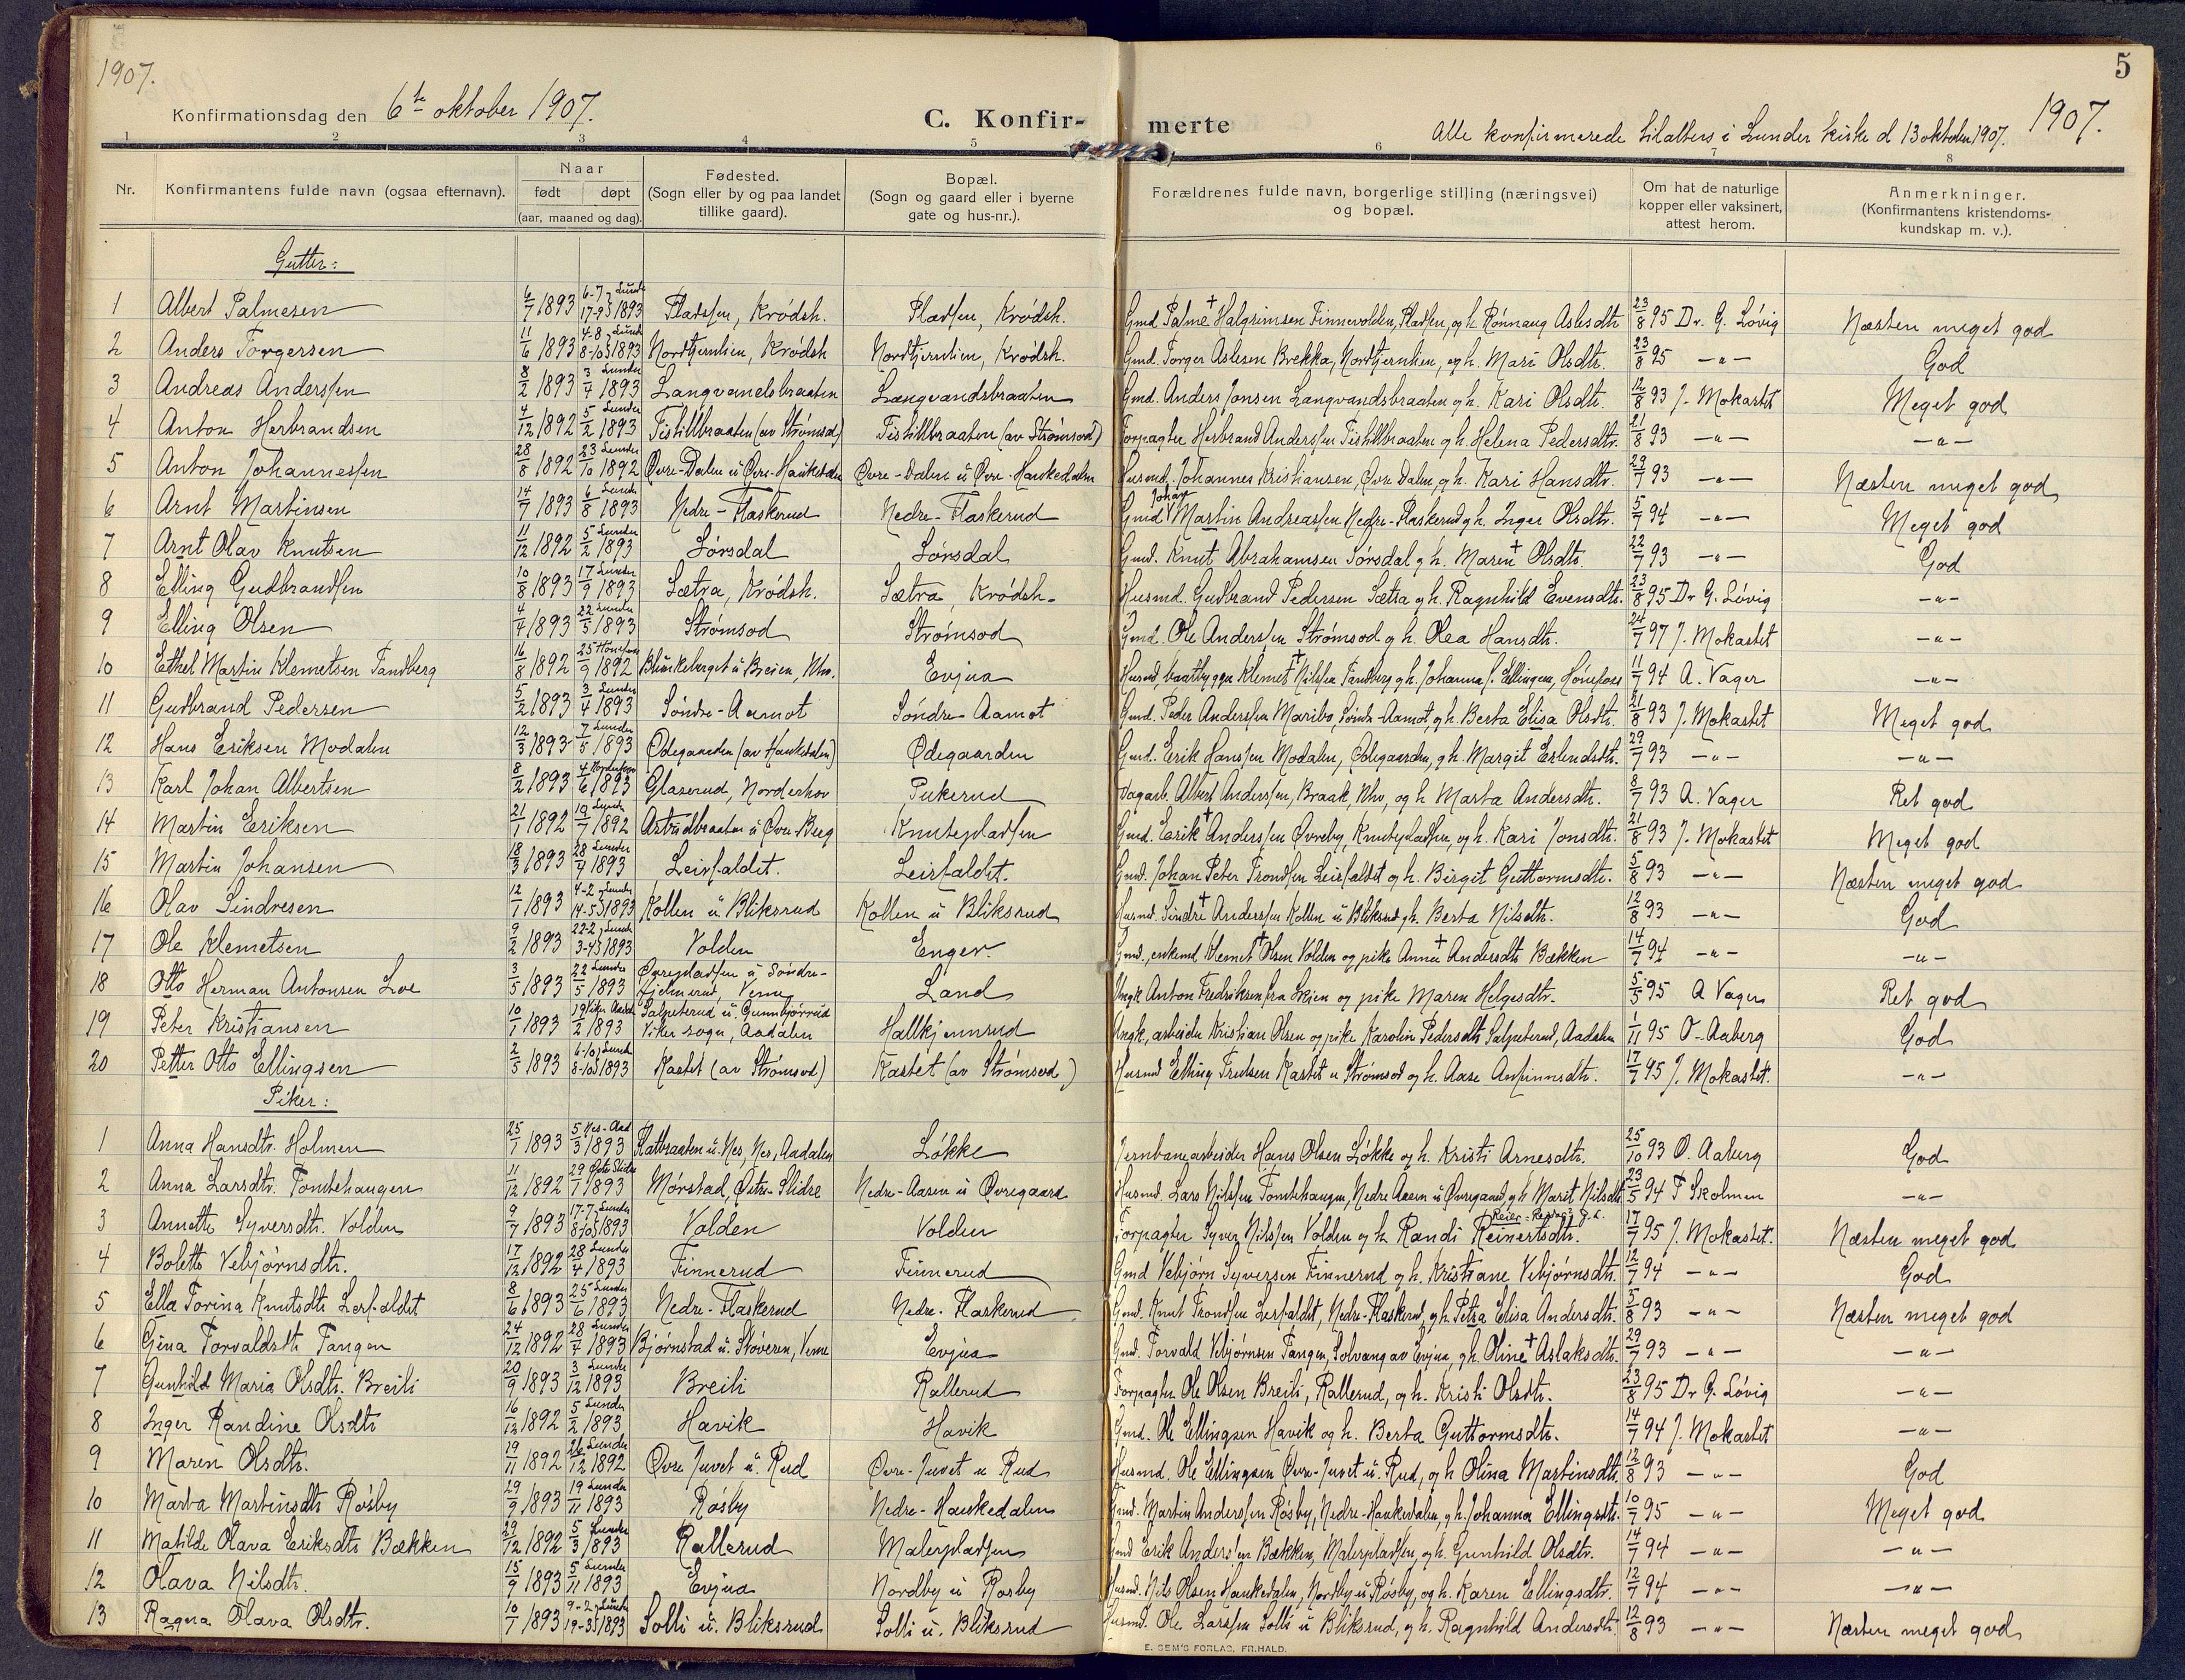 1907.
5
Konfirmationsdag den 6te oktober 1907.
C. Konfir-
merte
Alle konfirmerede til alters i Lunder kirke d 13 oktober 1907.
1907.
1 2 3 4 5 6 7 8
Nr. Konfirmantens fulde navn (ogsaa efternavn). Naar født døpt (aar, maaned og dag). Fødested. (Sogn eller by og paa landet tillike gaard). Bopæl. (Sogn og gaard eller i byerne gate og hus-nr.). Forældrenes fulde navn, borgerlige stilling (næringsvei) og bopæl. Om hat de naturlige kopper eller vaksinert, attest herom. Anmerkninger. (Konfirmantens kristendoms-kundskap m. v.).
Gutter:
1 Albert Palmesen 6/7 1893 6-7 17-9 1893 Lunder Pladsen, Krødsh. Pladsen, Krødsh. Gmd. Palme + Halgrimsen Finnevolden, Pladsen, og h. Rønnaug Aslesdtr 23/8 95 Dr. G. Løvig Næsten meget god
2 Anders Torgersen 11/6 1893 4-8 8-10 1893 Lunder Nordtjernlien, Krødsh Nordtjernlien, Krødsh. Gmd. Torger Aslesen Brekka, Nordtjernlien, og h. Mari Olsdtr. 23/8 95 -"- God
3 Andreas Anderssen 8/2 1893 3/4 1893 Lunder Langvandsbraaten Langvandsbraaten Gmd. Anders Jonsen Langvandsbraaten og h. Kari Olsdtr. 12/8 93 J. Mokastet Meget god
4 Anton Herbrandsen 4/12 1892 5/2 1893 Lunder Tistillbraaten (av Strømsod) Tistillbraaten (av Strømsod) Forpagter Herbrand Anderssen Tistillbraaten og h. Helena Pedersdtr. 21/8 93 -"- -"-
5 Anton Johannessen 28/8 1892 23/10 1892 Lunder Øvre-Dalen u Øvre-Haukedalen Øvre-Dalen u Øvre-Haukedalen Husmd. Johannes Kristiansen, Øvre Dalen, og h. Kari Hansdtr. 29/7 93 -"- Næsten meget god
6 Arnt Martinsen 14/7 1893 6/8 1893 Lunder Nedre-Flaskerud Nedre-Flaskerud Gmd Johan Martin Andreassen Nedre-Flaskerud og h. Inger Olsdtr. 5/7 94 -"- Meget god
7 Arnt Olav Knutsen 11/12 1892 5/2 1893 Lunder Sørsdal Sørsdal Gmd. Knut Abrahamsen Sørsdal og h. Maren + Olsdtr. 22/7 93 -"- God
8 Elling Gudbrandsen 10/8 1893 17/9 1893 Lunder Sætra, Krødsh. Sætra, Krødsh. Husmd. Gudbrand Pedersen Sætra og h. Ragnhild Evensdtr. 23/8 95 Dr G. Løvig -"-
9 Elling Olsen 4/4 1893 22/5 1893 Lunder Strømsod Strømsod Gmd. Ole Anderssen Strømsod og h. Olea Hansdtr. 24/7 97 J. Mokastet -"-
10 Ethel Martin Klemetsen Tandberg 16/8 1892 25/9 1892 Hønefoss Blinkeberget u Breien, Nhv. Evjua Husmd, baatbygger Klemet + Nilssen Tandberg og h. Johanna f. Ellingsen, Hønefoss 11/7 94 A. Vager -"-
11 Gudbrand Pedersen 5/2 1893 3/4 1893 Lunder Søndre-Aamot Søndre-Aamot Gmd. Peder Anderssen Maribo, Søndr-Aamot, og h. Berta Elisa Olsdtr. 21/8 93 J. Mokastet Meget god
12 Hans Eriksen Modalen 12/3 1893 7/5 1893 Lunder Ødegaarden (av Haukedalen) Ødegaarden Gmd. Erik Hanssen Modalen, Ødegaarden, og h. Margit Erlendsdtr. 29/7 93 -"- -"-
13 Karl Johan Albertsen 8/2 1893 4/6 1893 Norderhov Glaserud, Norderhov Pukerud Dagarb. Albert Anderssen, Braak, Nhv, og h Marta Andersdtr. 8/7 93 A. Vager Ret god
14 Martin Eriksen 21/1 1892 19/7 1892 Lunder Astrudbraaten u Øvre-Berg Knutepladsen Gmd. Erik + Anderssen Øvreby, Knutepladsen, og h. Kari Jonsdtr. 21/8 93 J. Mokastet Meget god
15 Martin Johansen 18/3 1893 28/4 1893 Lunder Leirfaldet. Leirfaldet. Gmd. Johan Peter Trondsen Leirfaldet og h. Birgit Guttormsdtr. 5/8 93 -"- Næsten meget god
16 Olav Sindresen 12/1 1893 4-2 14-5 1893 Lunder Kollen u Bliksrud Kollen u Bliksrud Husmd. Sindre + Anderssen Kollen u Bliksrud og h. Berta Nilsdtr. 12/8 93 -"- God
17 Ole Klemetsen 9/2 1893 22-2 3-4 1893 Lunder Volden Enger. Gmd., enkemd. Klemet + Olsen Volden og pike Anne + Andersdtr Bækken 14/7 94 -"- -"-
18 Otto Herman Antonsen Loe 3/5 1893 22/5 1893 Lunder Øvrepladsen u Søndre-Hjelmerud, Veme Land Ungk Anton Fredriksen fra Skien og pike Maren Helgesdtr. 5/5 95 A Vager Ret god
19 Peter Kristiansen 10/1 1893 19/2 1893 Viker Aadal Salpeterud u. Gunbjørrud Viker sogn, Aadalen Hallkjennrud Ungk, arbeider Kristian Olsen og pike Karolin Pedersdtr Salpeterud, Aadalen 1/11 95 O. Aaberg God
20 Petter Otto Ellingsen 2/5 1893 6-10 8-10 1893 Lunder Kastet (av Strømsod) Kastet (av Strømsod) Husmd Elling Trulsen Kastet u Strømsod og h. Aase Anfinnsdtr. 17/7 95 J. Mokastet. -"-
Piker:
1 Anna Hansdtr. Holmen 25/1 1893 5/3 1893 Nes-Aad Flatbraaten u. Nes, Nes, Aadalen Løkke Jernbanearbeider Hans Olsen Løkke og h. Kristi Arnesdtr. 25/10 93 O. Aaberg God
2 Anna Larsdtr. Tomtehaugen 11/12 1892 29/1 1893 Østr Slidre Mørstad, Østre Slidre Nedre-Aasen u Øvregaard Husmd. Lars Nilssen Tomtehaugen, Nedre Aasen u Øvregaard, og h Marit Nilsdtr 23/5 94 T Skolmen -"-
3 Annette Syversdtr. Volden 9/7 1893 17-7 8-10 1893 Lunder Volden Volden Forpagter Syver Nilssen Volden og h Randi Reinertsdtr. 17/7 95 J. Mokastet. Næsten meget god
4 Bolette Vebjørnsdtr. 17/12 1892 28/4 1893 Lunder Finnerud Finnerud Gmd Vebjørn Syversen Finnerud og h. Kristiane Vebjørnsdtr. 12/7 94 -"- God
5 Ella Torina Knutsdtr Lerfaldet 8/6 1893 25/6 1893 Lunder Nedre-Flaskerud Nedre-Flaskerud Gmd. Knut Trondsen Lerfaldet, Nedre-Flaskerud, og h. Petra Elisa Andersdtr. 5/8 93 -"- Næsten meget god
6 Gina Torvaldsdtr Tangen 24/12 1892 28/4 1893 Lunder Bjørnstad u. Støveren, Veme Evjua Gmd. Torvald Vebjørnsen Tangen, Solvang av Evjua, og h. Oline + Aslaksdtr. 29/7 93 -"- -"-
7 Gunhild Maria Olsdtr. Breili 20/9 1893 3/12 1893 Lunder Breili Rallerud Forpagter Ole Olsen Breili, Rallerud, og h. Kristi Olsdtr. 23/8 95 Dr G. Løvig -"-
8 Inger Randine Olsdtr 16/12 1892 5/2 1893 Lunder Havik Havik Gmd. Ole Ellingsen Havik og h. Berta Guttormsdtr. 14/7 94 J. Mokastet -"-
9 Maren Olsdtr. 19/11 1892 26/12 1892 Lunder Øvre Juvet u. Rud Øvre-Juvet u Rud Husmd. Ole Ellingsen Øvre-Juvet u. Rud, og h Olina Martinsdtr. 12/8 93 -"- God
10 Marta Martinsdtr Røsby 29/9 1893 19/11 1893 Lunder Røsby Nedre-Haukedalen Gmd. Martin Anderssen Røsby, Nedre-Haukedalen, og h. Johanna Ellingsdtr. 10/7 95 -"- Meget god
11 Matilde Olava Eriksdtr Bækken 29/12 1892 5/3 1893 Lunder Rallerud Malerpladsen Gmd Erik Anderssen Bækken, Malerpladsen, og h. Gunhild Olsdtr. 14/7 94 -"- -"-
12 Olava Nilsdtr. 15/9 1893 5/11 1893 Lunder Evjua Nordby u Røsby Husmd. Nils Olsen Haukedalen, Nordby u Røsby, og h. Karen Ellingsdtr. 12/7 94 -"- -"-
13 Ragna Olava Olsdtr. 10/7 1893 9-2 19-3 1893 Lunder Solli u. Bliksrud Solli u. Bliksrud Husmd. Ole Larssen Solli u Bliksrud, og h. Ragnhild Andersdtr. 12/8 93 -"- Næsten meget god
E. SEM'S FORLAG, FR.HALD.